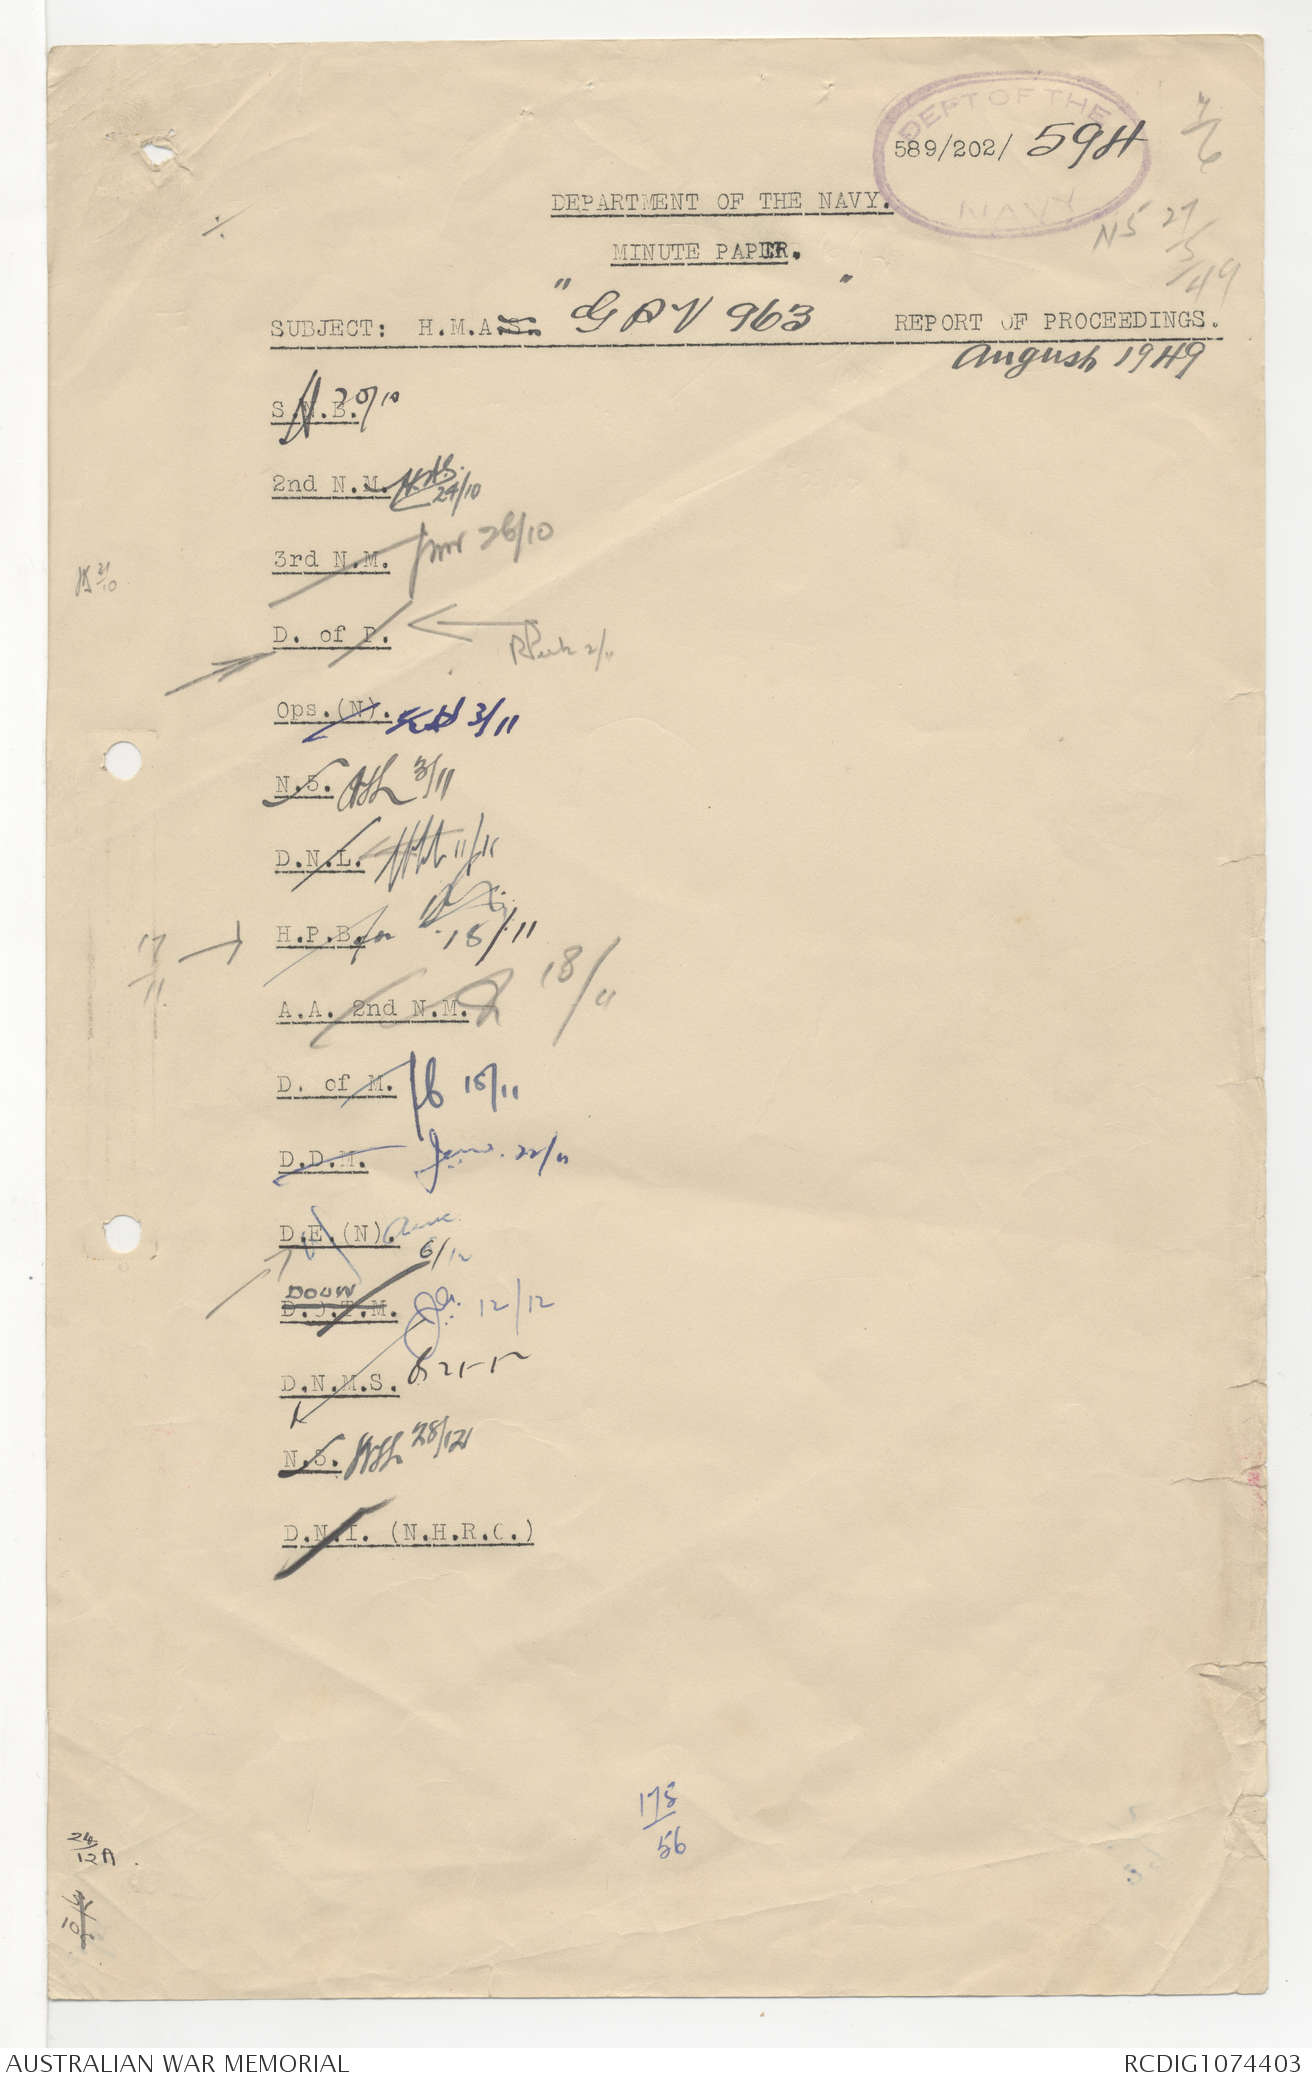 DEPT OF THE
589/202/ 594
NAVY
7/6
DEPARTMENT OF THE NAVY.
N5 27/5/49
MINUTE PAPER.
SUBJECT: H.M.A.S. "GPV 963" REPORT OF PROCEEDINGS.
August 1949
S.N.B. 20/10
2nd N.M. 24/10
3rd N.M. 26/10
21/10
D. of P.
2/11
Ops.(N). 3/11
N.5. 3/11
D.N.L. 11/11
H.P.B. 18/11
17/11
A.A. 2nd N.M. 18/11
D. of M. 18/11
D.D.M. 22/11
D.E.(N).
6/12
DOUW
D.O.T.M. 12/12
D.N.M.S. 21-12
N.5. 28/12
D.N.I. (N.H.R.C.)
175
56
24/12 A
AUSTRALIAN WAR MEMORIAL RCDIG1074403